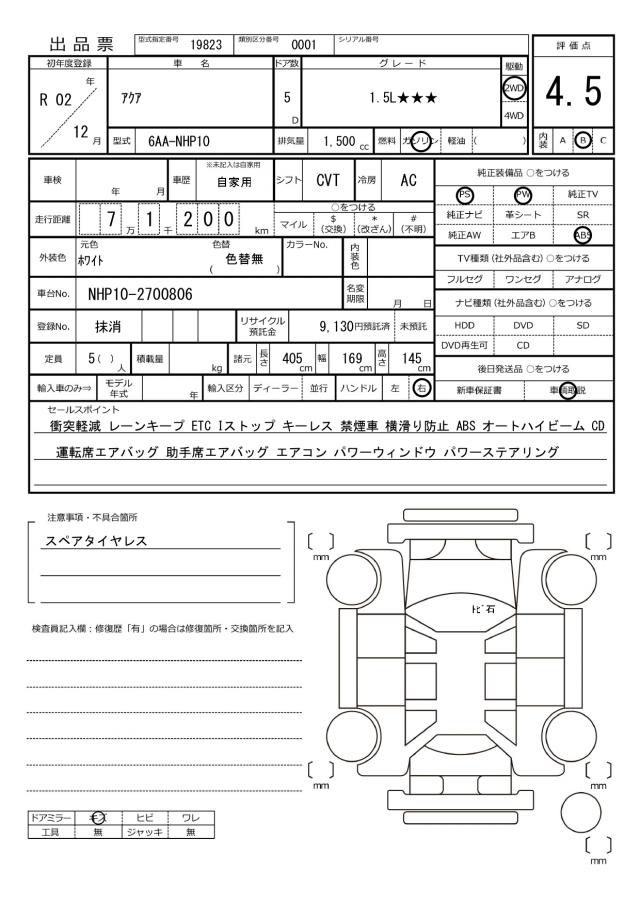 出品票 型式指定番号 19823 類別区分番号 0001 シリアル番号
評価点
初年度登録 車名 ドア数 グレード 駆動
R 02 年 12 月 アクア 5 D 1.5L★★★ 2WD 4WD
4.5
型式 6AA-NHP10 排気量 1,500 cc 燃料 ガソリン 軽油 ( ) 内装 A B C
車検 年 月 車歴 ※未記入は自家用 自家用 シフト CVT 冷房 AC
純正装備品 ○をつける
PS PW 純正TV
純正ナビ 革シート SR
純正AW エアB ABS
走行距離 7 万 1 千 2 0 0 km ○をつける
マイル $(交換) *(改ざん) #(不明)
外装色 元色 ホワイト 色替 ( 色替無 ) カラーNo. 内装色
TV種類 (社外品含む) ○をつける
フルセグ ワンセグ アナログ
車台No. NHP10-2700806 名変期限 月 日
ナビ種類 (社外品含む) ○をつける
登録No. 抹消 リサイクル預託金 9,130円預託済 未預託
HDD DVD SD
DVD再生可 CD
定員 5 ( ) 人 積載量 kg 諸元 長さ 405 cm 幅 169 cm 高さ 145 cm
後日発送品 ○をつける
輸入車のみ⇒ モデル年式 年 輸入区分 ディーラー 並行 ハンドル 左 右
新車保証書 車輌取説
セールスポイント
衝突軽減 レーンキープ ETC Iストップ キーレス 禁煙車 横滑り防止 ABS オートハイビーム CD
運転席エアバッグ 助手席エアバッグ エアコン パワーウィンドウ パワーステアリング
注意事項・不具合箇所
スペアタイヤレス
検査員記入欄：修復歴「有」の場合は修復箇所・交換箇所を記入
〔 〕 mm
〔 〕 mm
トビ石
〔 〕 mm
〔 〕 mm
〔 〕 mm
ドアミラー キズ ヒビ ワレ
工具 無 ジャッキ 無